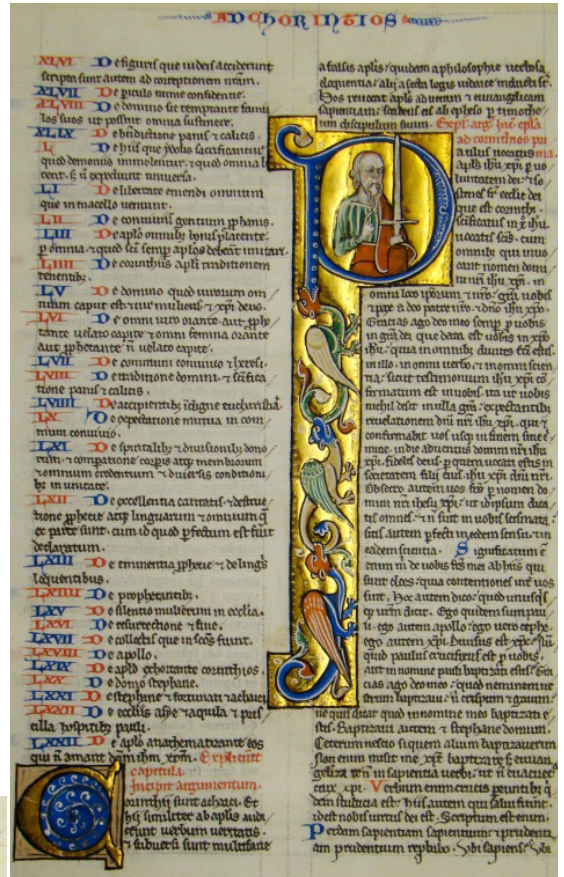 AD CHORINTIOS
XLVI De figuris que iudeis acciderunt
scripta sunt autem ad correptionem nr̄am.
XLVII De periculo nimie confidentie.
XLVIII De domino sic temptante famu
los suos ut possint omnia sustinere.
XLIX De benedictione panis & calicis.
L De hiis que ydolis sacrificantur
quod demonio immolentur. & quod omnia li
cent. s; n̄ expediunt universa.
LI De libertate emendi omnium
que in macello veniunt.
LII De conviviis gentium
LIII De aplo omnibus bonis placente.
p omnia. & quod sc̄i semp aplos debeant imitari.
LIIII De corinthiis apli traditionem
tenentib;.
LV De domino quod uirorum om
nium caput est sive mulieris & xp̄i deus.
LVI De omni uiro orante aut
tante velato capite & omni femina orante
aut n̄ velato capite.
LVII De communi convivio & heresi.
LVIII De traditione domini. & sc̄ifica
tione panis & calicis.
LVIIII De accipientib; indigne eucharistiā.
LX De expectatione mutua in com
muni convivio.
LXI De spiritalib; & divisionib; dono
rum. & comparatione corporis atq; membrorum
& omnium credentium & diversis conditioni
b; in unitate.
LXII De excellentia caritatis. & destruc
tione atq; linguarum & omnium q̄
ex parte sunt. cum id quod perfectum est fuit
declaratum.
LXIII De eminentia & de lingis
loquentibus.
LXIIII De prophetantib;.
LXV De silentio mulierum in ecclia.
LXVI De resurrectione & fine.
LXVII De collectis que in sc̄os fiunt.
LXVIII De apollo.
LXIX De aplo exhortante corinthios.
LXX De domo stephane.
LXXI De stephane & fortunati & achaici.
LXXII De eccliis asye & aquila & pris
cilla hospitib; pauli.
LXXII De aplo anathematizante eos
qui n̄ amant dn̄m ihm xpm. Expliciunt
capitula.
Incipit argumentum.
Corinthii sunt achaici. Et
hii similiter ab aplis audi
erunt verbum veritatis.
& subversi sunt multifarie
a falsis aplis. quidam a philosophie verbosa
eloquentia. alii a secta legis iudaice inducti se.
Hos revocat apls ad veram & euuangelicam
sapientiam. scribens eis ab epheso p timothe
um discipulum suum. Expl. arg. Inc. epla
ad corinthios pri
ma.
Paulus vocatus
apls ihu xpi p vo
luntatem dei. & so
stenes fr̄ ecclie dei
que est corinthi.
sc̄ificatis in x̄ ihu
vocatis sc̄is. cum
omnib; qui invo
cant nomen domi
ni nr̄i ihu xpi. in
omni loco ipsorum & nr̄o. grā vobis
& pax a deo patre nr̄o. & dn̄o ihu xpo.
Gratias ago deo meo semp p vobis
in grā dei que data est vobis in xpo
ihu. quia in omnib; divites fc̄i estis
in illo. in omni verbo. & in omni scien
tia. sicut testimonium ihu xpi con
firmatum est in vobis. ita ut vobis
nichil desit in ulla grā. expectantib;
revelationem dn̄i nr̄i ihu xpi. qui &
confirmabit vos usq; in finem sine c̄i
mine. in die adventus domini nr̄i ihu
xpi. fidelis deus. p quem vocati estis in
societatem filii eius ihu xpi dn̄i nr̄i.
Obsecro autem vos fr̄s p nomen do
mini nr̄i ihesu xpi. ut idipsum dica
tis omnes. & n̄ sint in vobis scismata.
sitis autem perfecti in eodem sensu. & in
eadem scientia. Significatum ē
enim m̄ de vobis fr̄s mei ab hiis qui
sunt cloes. quia contentiones int̄ vos
sunt. Hoc autem dico. quod unusq̄s
q; vr̄m dicit. Ego quidem sum pau
li. ego autem apollo. ego vero cephe.
ego autem xpi. Divisus est xpc. Nū
quid paulus crucifixus est p vobis.
aut in nomine pauli baptizati estis. Gra
cias ago deo meo. quod neminem ve
strum baptizavi. n̄ crispum & gaium.
ne quis dicat quod in nomine meo baptizati e
stis. Baptizavi autem & stephane domum.
Ceterum nescio si quem alium baptizaverim
Non enim misit me xpc baptizare s; euuan
gelizare. n̄ in sapientia verbi. ut n̄ evacuet̄
crux xpi. Verbum enim crucis pereuntib; q̄
dem stulticia est. hiis autem qui salvi fiunt.
idest nobis virtus dei est. Scriptum est enim.
Perdam sapientiam sapientium. & prudenti
am prudentium reprobo. Ubi sapiens. Ubi